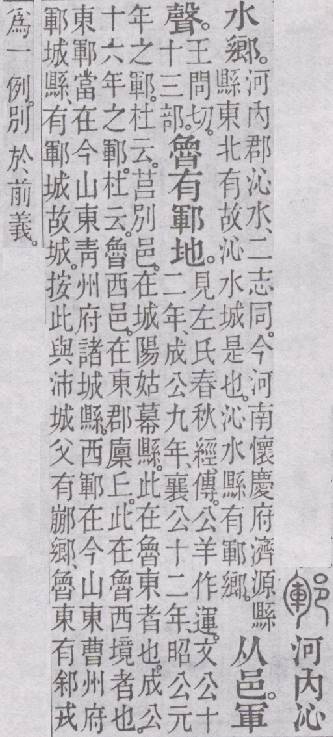 鄆河內沁
水鄉。河內郡沁水、二志同。今河南懷慶府濟源縣縣東北有故沁水城是也。沁水縣有鄆鄉。从邑。軍
聲。王問切。十三部。魯有鄆地。見左氏春秋經傳。公羊作運。文公十二年、成公九年、襄公十二年、昭公元
年之鄆。杜云。莒別邑。在城陽姑幕縣。此在魯東者也。成公十六年之鄆。杜云。魯西邑。在東郡廩丘。此在魯西境者也。
東鄆當在今山東靑州府諸城縣。西鄆在今山東曹州府鄆城縣有鄆城故城。按此與沛城父有䣙鄉、魯東有䣄戎
爲一例。別於前義。